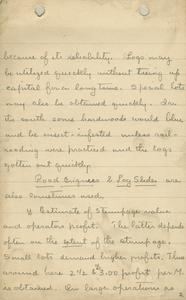 because of its reliability. Logs may
be utilized quickly without tieing up
capital for a long time. Special lots
may also be obtained quickly. In
the south some hardwoods would blue
and be insect-infested unless rail-
roading were practiced and the logs
gotten out quickly.
Road Engines & Log Slides are
also sometimes used.
Estimate of stumpage value
and operators profit. The latter depends
often on the extent of the stumpage.
Small lots demand higher profits. Thus
around here 2.50 to 3.00 profit per M.
is obtained. On large operations as